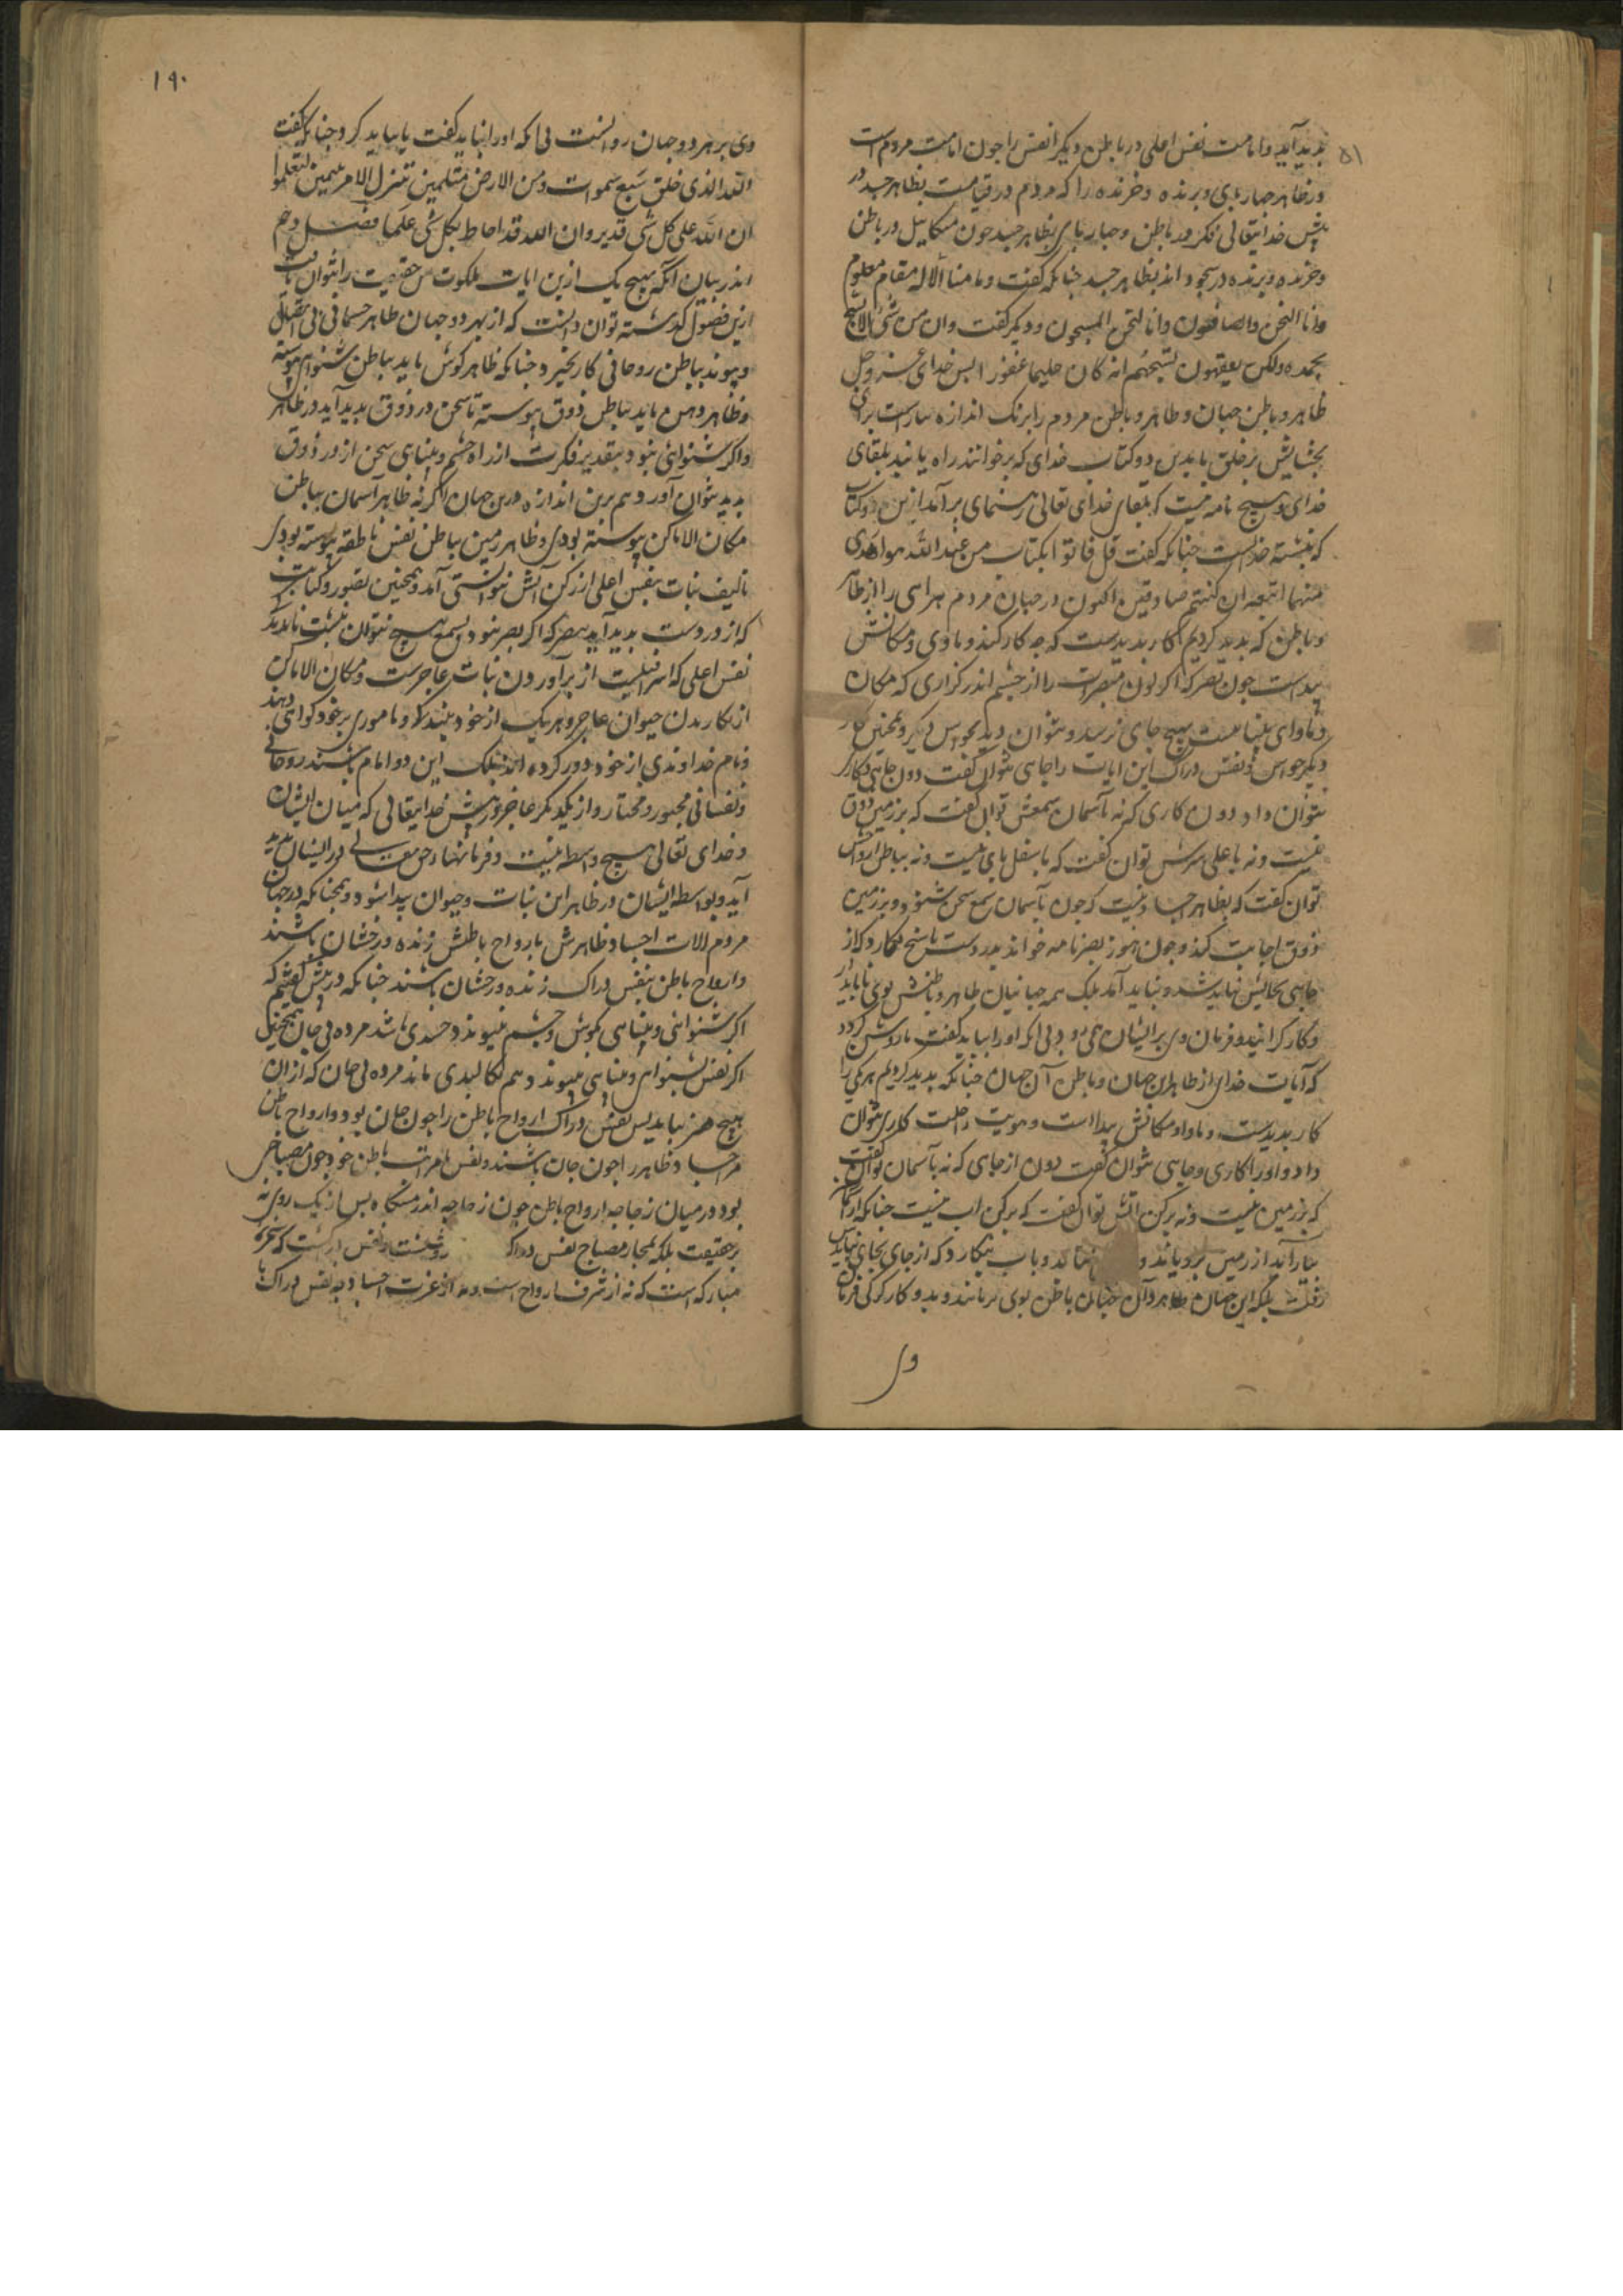 پدید آید و امامت نفس اعلی در باطن دیگر انفس را چون امامت مردم است
در ظاهر چهارپای و پرنده و خزنده را که مردم در قیامست بظاهر جسد در
پیش خدایتعالی فکر در باطن و چهارپای بظاهر جسد چون میکاییل در باطن
و خزنده و پرنده در سجود اند بظاهر جسد چنانکه گفت وما منا الا له مقام معلوم
وانا لنحن الصافون وانا لنحن المسبحون و دیگر گفت وان من شی الا یسبح
بحمده ولکن لا یفقهون تسبیحهم انه کان حلیما غفورا پس خدای عز و جل
ظاهر و باطن جهان و ظاهر و باطن مردم را بریک اندازه بیاراست برای
بخشایش بر خلق تا بدین دو کتاب خدای که برخوانند راه یابند بلقای
خدای و هیچ نامه نیست که بلقای خدای تعالی رهنمای برآمد ازین دو کتاب
که نبشته خداست چنانکه گفت قل فاتوا بکتاب من عند الله هو اهدی
منهما اتبعه ان کنتم صادقین اکنون در جهان مردم هر اسی را از ظاهر
و باطن که پدید کردیم کار پدیدست که چه کار کند و ماوی و مکانش
پیداست چون بصر که اگر لون مبصرات را از چشم اندر گذاری که مکان
و ماوای بیناییست هیچ جای نرسد و نتوان دید بحواس دیگر و همچنین کار
دیگر حواس و نفس دراک این آیات را جایی نتوان گفت دون جایی و کاری
نتوان داد دون کاری که نه بآسمان سمعش توان گفت که بر زمین ذوق
نیست و نه باعلی سرش توان گفت که باسفل پای نیست و نه بباطن ارواحش
توان گفت که بظاهر اجساد نیست که چون بآسمان سمع سخن شنود و بر زمین
ذوق اجابت کند و چون بنور بصر نامه خواند بید دست پاسخ نگارد که از
جایی بجاییش نباید شد و نباید آمد بلک همه جهانیان ظاهر و باطنش بوی پایدار
و کارگرانید و فرمان وی بر ایشان همی رود بی آنکه او را بباید گفت یا روشن گردد
که آیات خدای از ظاهر این جهان و باطن آن جهان چنانکه پدید کردیم هریکی را
کار پدیدست و ماوا و مکانش پیداست و هویت راست کاری نتوان
داد و او را کاری و جایی نتوان گفت دون از جایی که نه بآسمان توان گفت
که بر زمین نیست و نه برکن آتش توان گفت که برکن آب نیست چنانکه
بباراند از زمین برویاند و بآب بنگارد که از جای بجای نبایدش
رفت بلکه این جهان ظاهر و آن جهان باطن بوی برمانند و بدو کارگر کی فرمان
وی
۱۹۰
وی بر هر دو جهان روانست بی آنکه او را نباید گفت یا بباید کرد چنانکه گفت
الله الذی خلق سبع سموات ومن الارض مثلهن یتنزل الامر بینهن لتعلموا
ان الله علی کل شی قدیر وان الله قد احاط بکل شی علما فصل دهم
اندر بیان آنکه هیچ یک ازین آیات ملکوت حقیقت را نتوان یافت
ازین فصول گذشته توان دانست که از هر دو جهان ظاهر جسمانی بی اتصال
و پیوند بباطن روحانی کار نخیزد چنانکه ظاهر گوش باید بباطن شنوایی پیوسته
و ظاهر دهن باید بباطن ذوق پیوسته تا سخن در ذوق پدید آید در ظاهر
و اگر شنوائی نبود بتقدیر فکرت از راه چشم و بینایی سخن از در ذوق
پدید نتوان آورد هم برین اندازه درین جهان اگر نه ظاهر آسمان بباطن
مکان الاماکن پیوسته بودی و ظاهر زمین بباطن نفس ناطقه پیوسته بودی
تالیف نبات بنفس اعلی از رکن آتش نتوانستی آمد و همچنین تصویر و کتابت
که از در دست پدید آید ببصر که اگر بصر نبود بسمع هیچ نتوان نبشت تا بدانک
نفس اعلی که اسرافیلیست از برآوردن نبات عاجزست و مکان الاماکن
از نگاریدن حیوان عاجز و هریک از خود بیفکند و ماموری بر خود گواهی دهند
و نام خداوندی از خود دور کرده اند بلک این دو امام باشند روحانی
و نفسانی مجبور و مختار و از یکدیگر عاجز و در پیش خدایتعالی که میان ایشان
و خدای تعالی هیچ واسطه نیست و فرمانها و حق تعالی در ایشان پدید
آید و بواسطه ایشان در ظاهر این نبات و حیوان پیدا شود و همچنانکه در جهان
مردم آلات اجساد ظاهرش بارواح باطنش زنده و رخشان باشند
و ارواح باطن بنفس دراک زنده و رخشان باشند چنانکه در پیش گفتیم که
اگر شنوائی و بینایی بگوش و چشم نپیوندد جسدی باشد مرده بی جان همچنین
اگر نفس بشنوایی و بینایی نپیوندد هم کالبدی ماند مرده بی جان که از آن
هیچ هنر نیاید پس نفس دراک ارواح باطن را چون جان بود و ارواح باطن
مر اجساد ظاهر را چون جان باشند و نفس بمراتب باطن خود چون مصباحی
بود در میان زجاجه ارواح باطن چون زجاجه اندر مشکاه پس از یک روی نه
بر حقیقت بلکه بمجاز مصباح نفس دراکه روشنست و نفس از که شجره
مبارکه است که نه از شرف ارواح است و نه از غرب اجساد به نفس دراک با